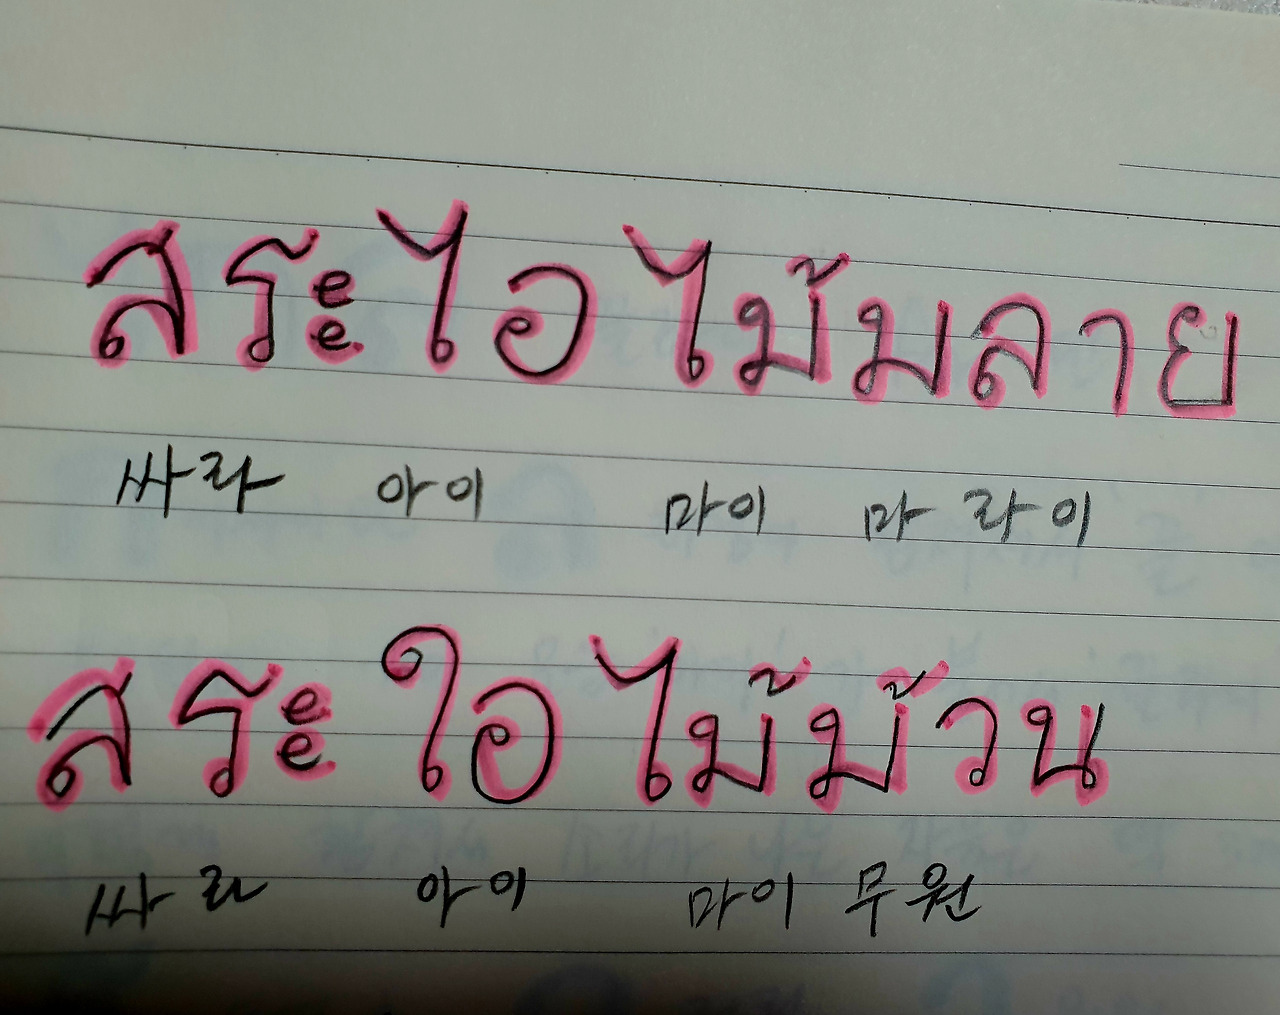 สระไอไม้มลาย
싸라 아이 마이 마 라이
สระใอไม้ม้วน
싸라 아이 마이 무원